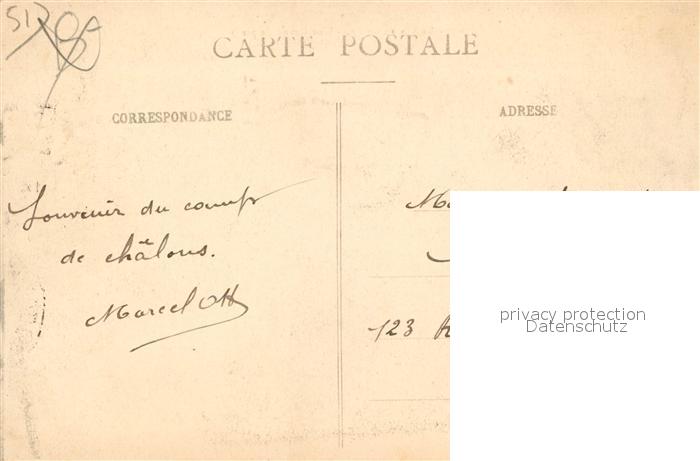 517
CARTE POSTALE
CORRESPONDANCE
ADRESSE
Souvenir du camp
de châlons.
Marcel Ott
123 R
privacy protection
Datenschutz